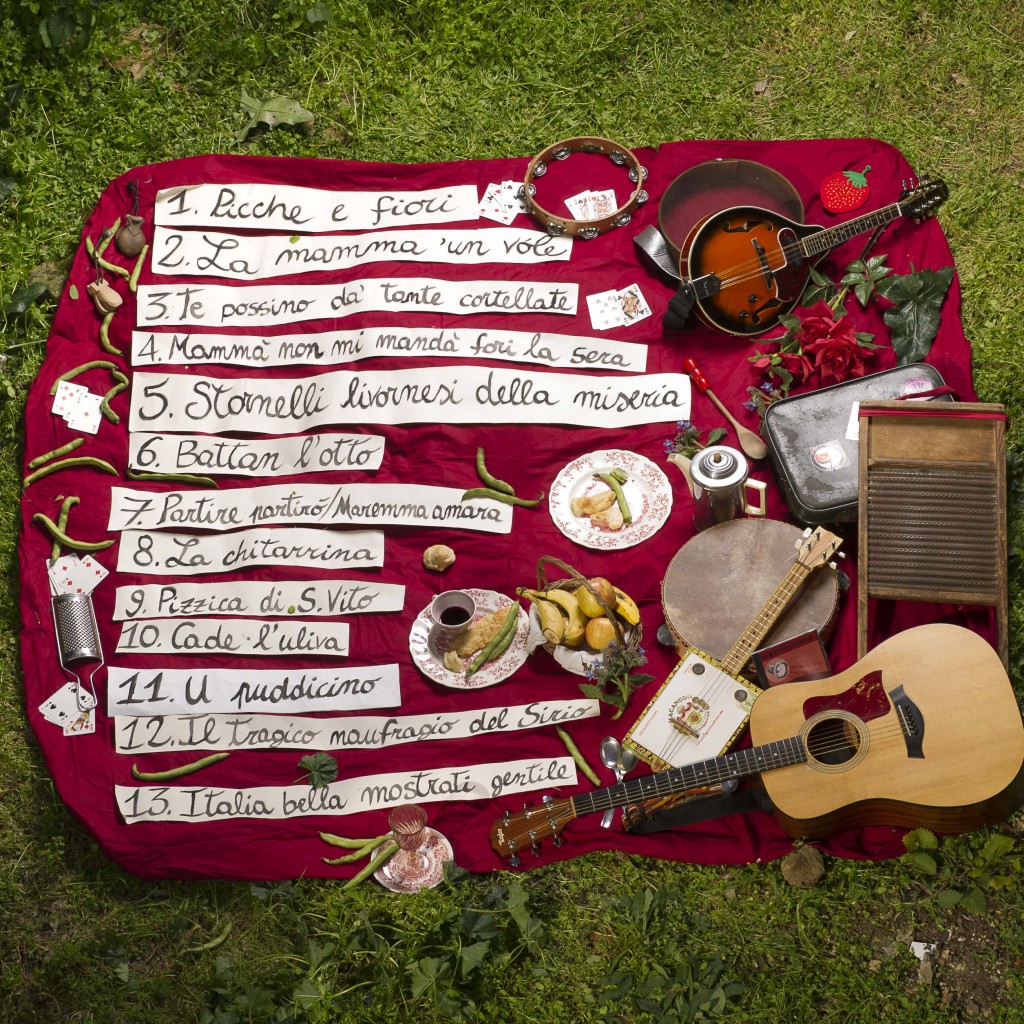 1. Picche e fiori
2. La mamma 'un vole
3. Te possino da' tante cortellate
4. Mammà non mi mandà fori la sera
5. Stornelli livornesi della miseria
6. Battan l'otto
7. Partire partirò/Maremma amara
8. La chitarrina
9. Pizzica di S. Vito
10. Cade l'uliva
11. U puddicino
12. Il Tragico naufragio del Sirio
13. Italia bella mostrati gentile